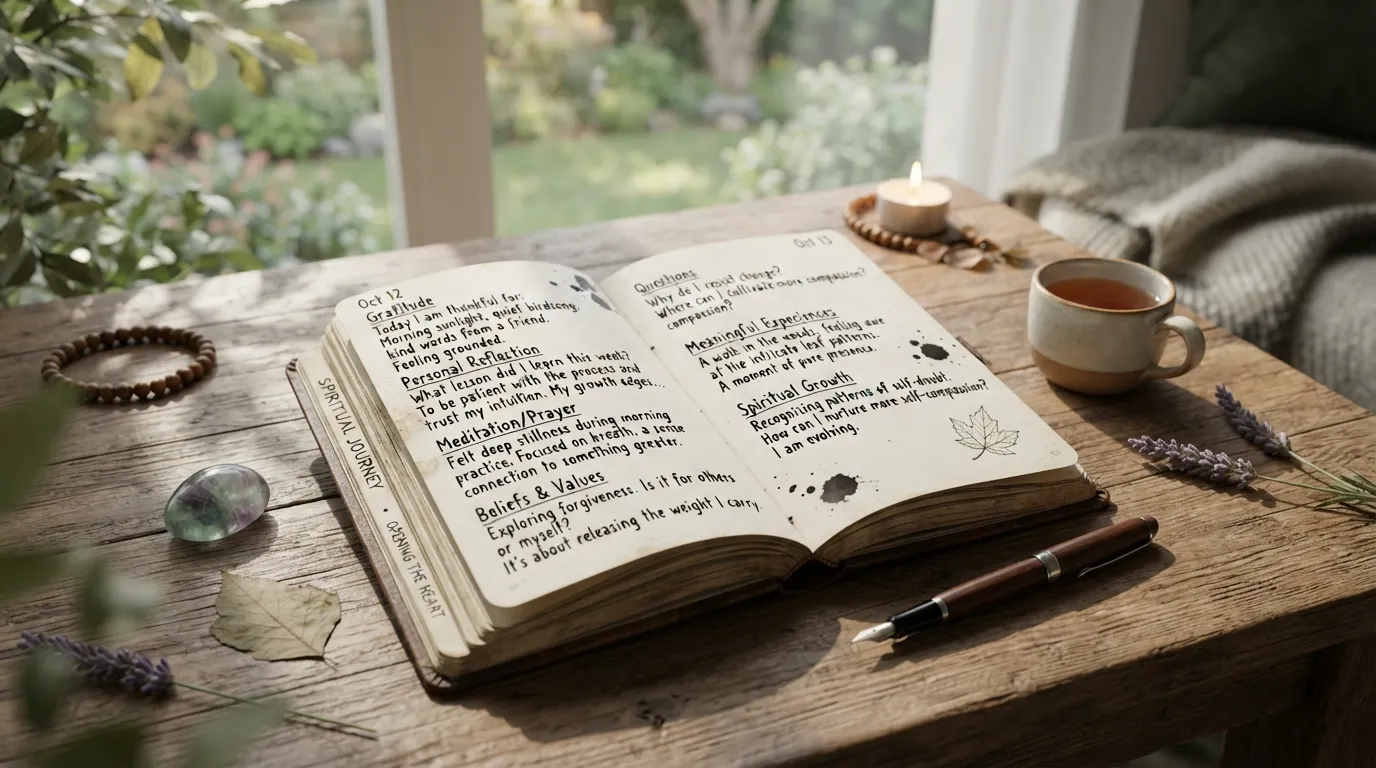 Oct 12
Gratitude
Today I am thankful for:
Morning sunlight, quiet birdsong,
kind words from a friend.
Feeling grounded.
Personal Reflection
What lesson did I learn this week?
To be patient with the process and
trust my intuition. My growth edges...
Meditation/Prayer
Felt deep stillness during morning
practice. Focused on breath, a sense
connection to something greater.
Beliefs & Values
Exploring forgiveness. Is it for others
or myself?
It's about releasing the weight I carry.
SPIRITUAL JOURNEY • OPENING THE HEART
Oct 13
Questions
Why do I resist change?
Where can I cultivate more compassion?
compassion?
Meaningful Experiences
A walk in the woods, feeling awe
at the intricate leaf patterns.
A moment of pure presence.
Spiritual Growth
Recognizing patterns of self-doubt.
How can I nurture more self-compassion?
I am evolving.